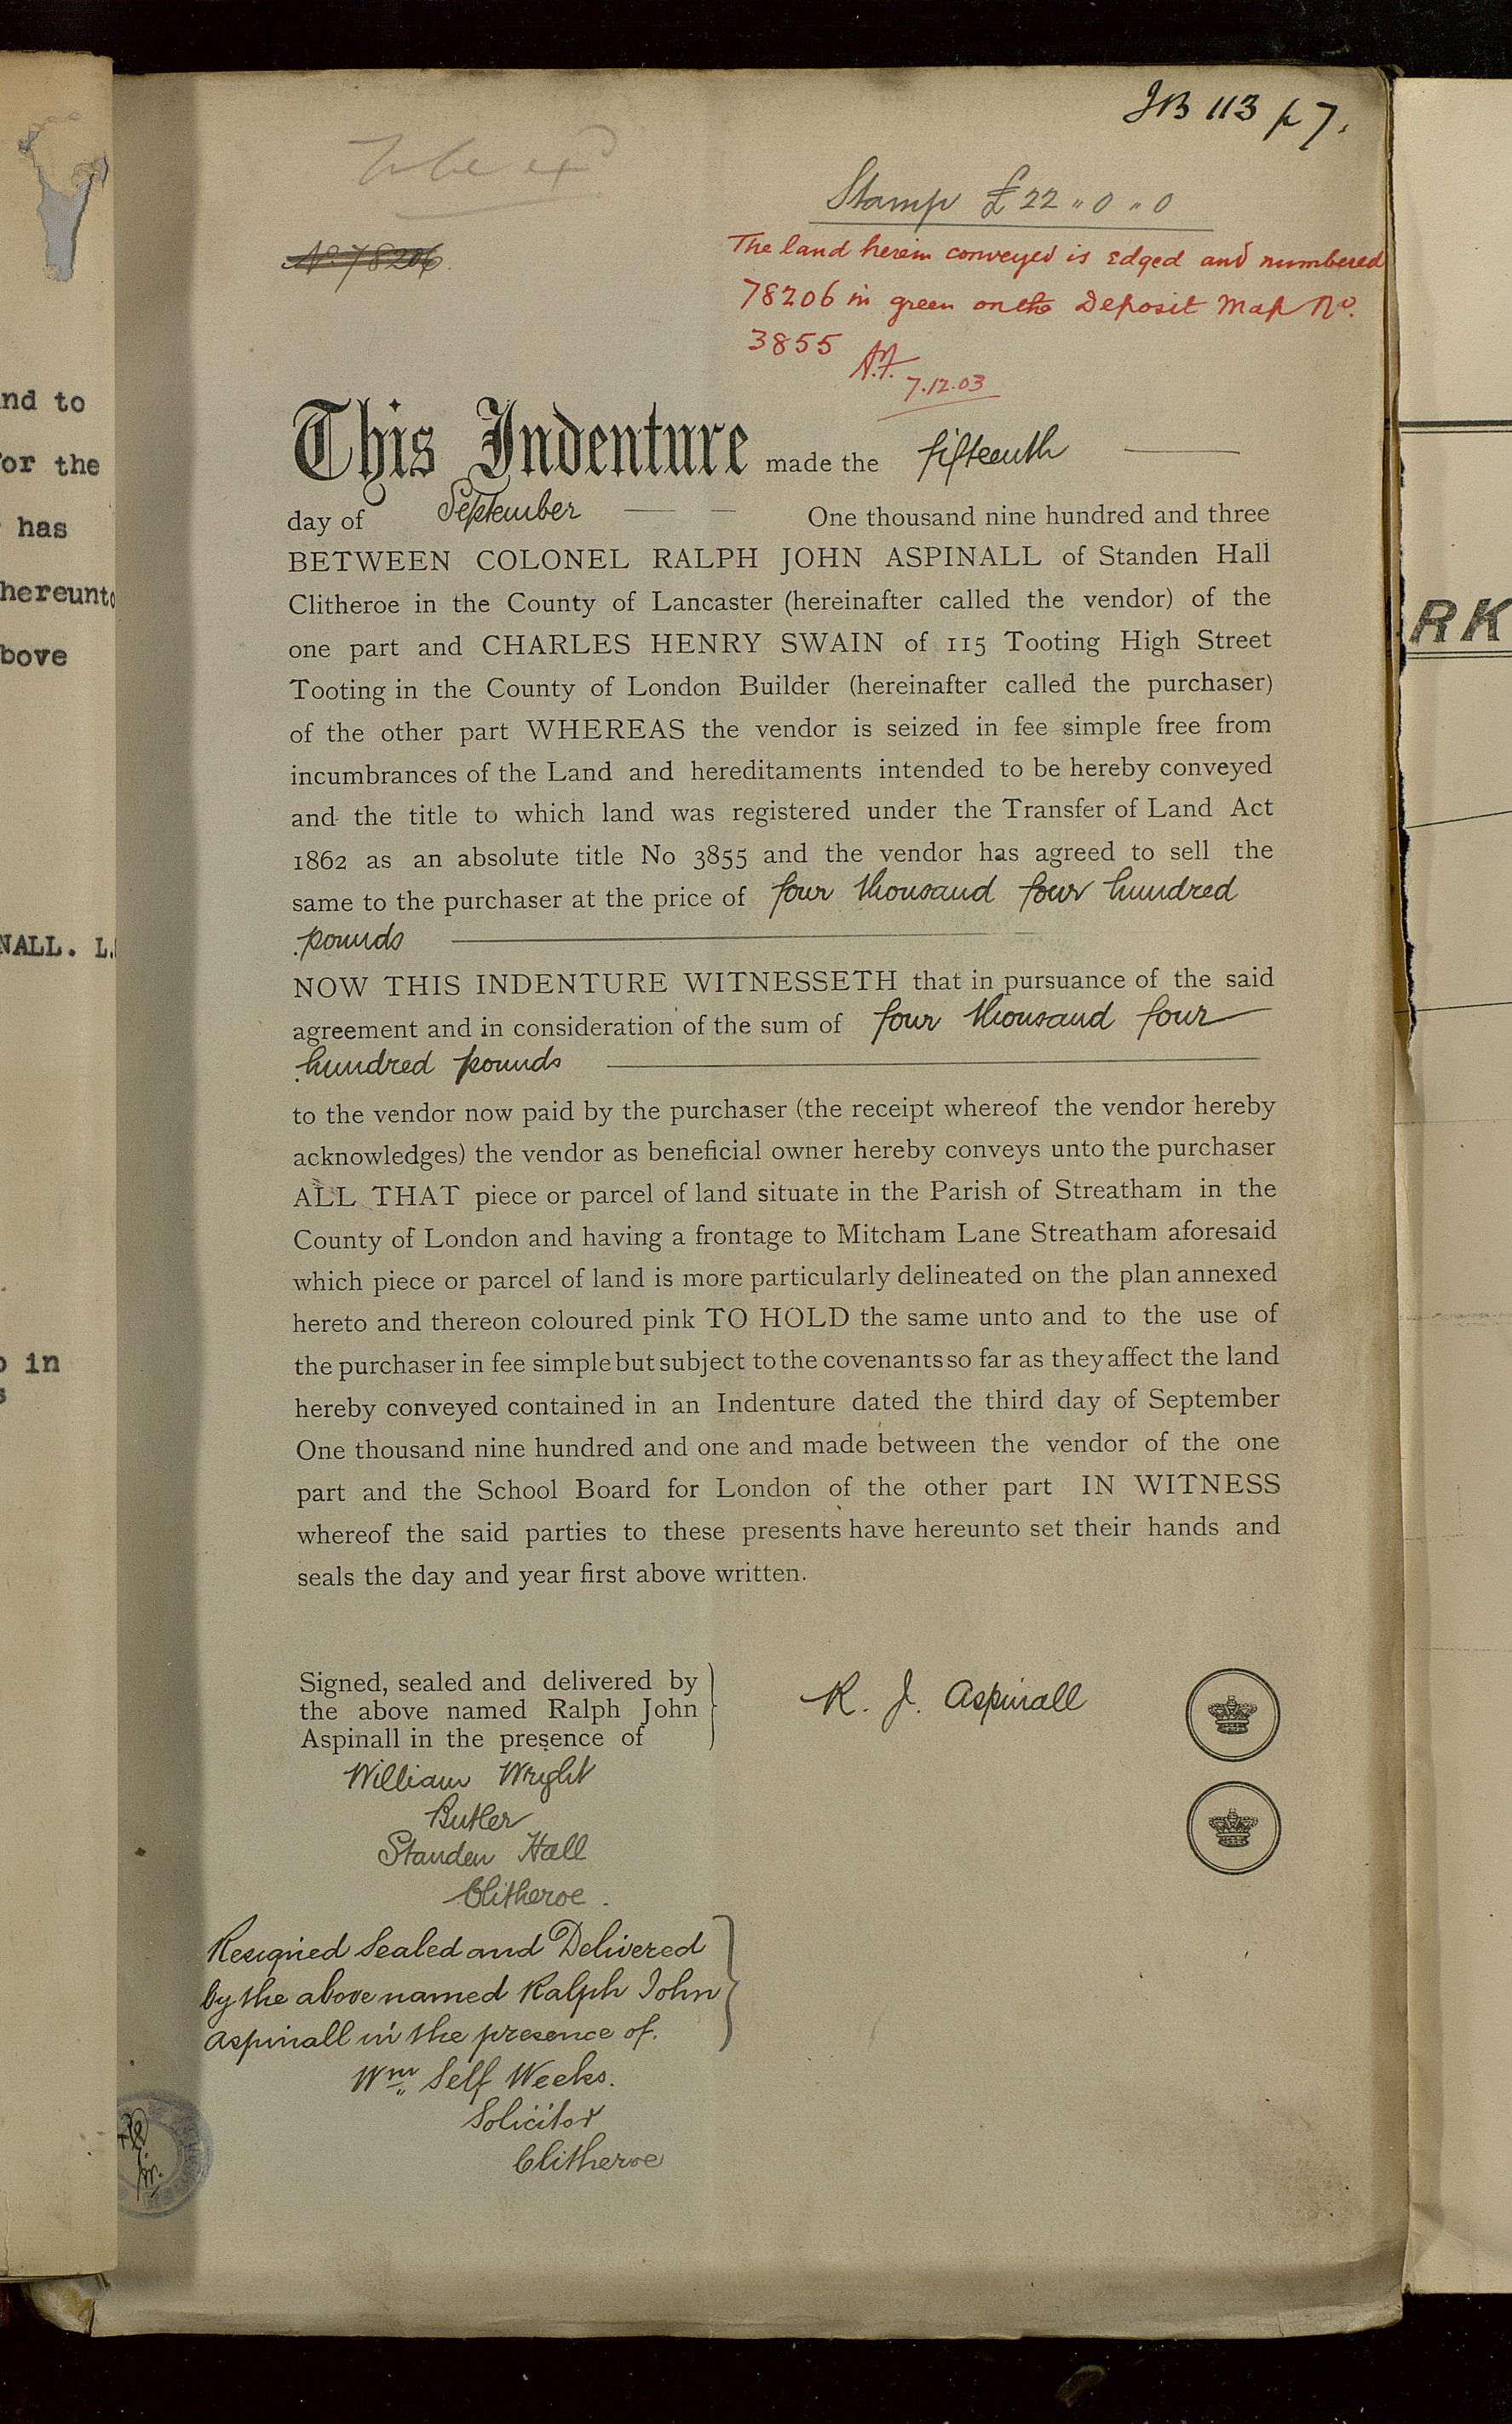 JB 113 p 7.
Stamp £22 " 0 " 0
No 78206.
The land herein conveyed is edged and numbered
78206 in green on the Deposit Map No.
3855
7.12.03
This Indenture made the fifteenth
day of September One thousand nine hundred and three
BETWEEN COLONEL RALPH JOHN ASPINALL of Standen Hall
Clitheroe in the County of Lancaster (hereinafter called the vendor) of the
one part and CHARLES HENRY SWAIN of 115 Tooting High Street
Tooting in the County of London Builder (hereinafter called the purchaser)
of the other part WHEREAS the vendor is seized in fee simple free from
incumbrances of the Land and hereditaments intended to be hereby conveyed
and the title to which land was registered under the Transfer of Land Act
1862 as an absolute title No 3855 and the vendor has agreed to sell the
same to the purchaser at the price of four thousand four hundred
pounds
NOW THIS INDENTURE WITNESSETH that in pursuance of the said
agreement and in consideration of the sum of four thousand four
hundred pounds
to the vendor now paid by the purchaser (the receipt whereof the vendor hereby
acknowledges) the vendor as beneficial owner hereby conveys unto the purchaser
ALL THAT piece or parcel of land situate in the Parish of Streatham in the
County of London and having a frontage to Mitcham Lane Streatham aforesaid
which piece or parcel of land is more particularly delineated on the plan annexed
hereto and thereon coloured pink TO HOLD the same unto and to the use of
the purchaser in fee simple but subject to the covenants so far as they affect the land
hereby conveyed contained in an Indenture dated the third day of September
One thousand nine hundred and one and made between the vendor of the one
part and the School Board for London of the other part IN WITNESS
whereof the said parties to these presents have hereunto set their hands and
seals the day and year first above written.
Signed, sealed and delivered by
the above named Ralph John
Aspinall in the presence of
R. J. Aspinall
William Wright
Butler
Standen Hall
Clitheroe.
Resigned Sealed and Delivered
by the above named Ralph John
Aspinall in the presence of.
Wm Self Weeks.
Solicitor
Clitheroe
nd to
or the
has
hereunto
bove
NALL.
in
RK